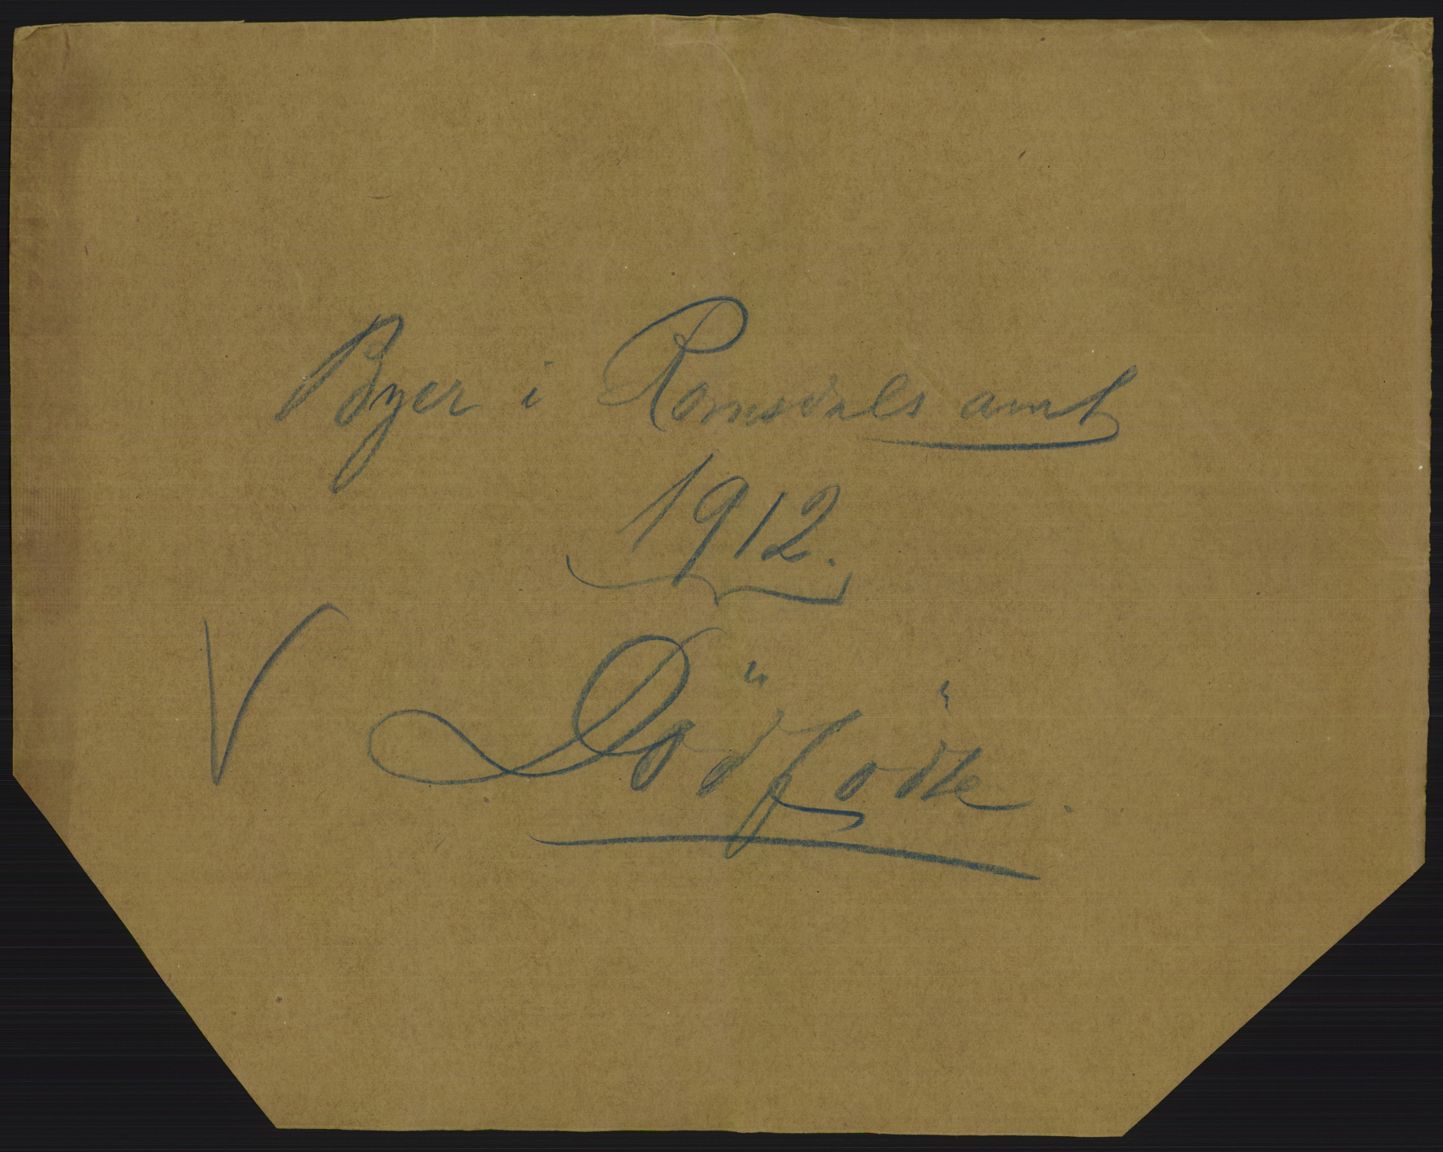 Byer i Romsdals amt
1912.
V Dödfödte.